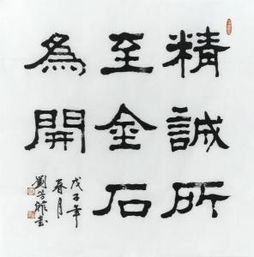 精誠所
至金石
為開
戊子年
春月
劉
書